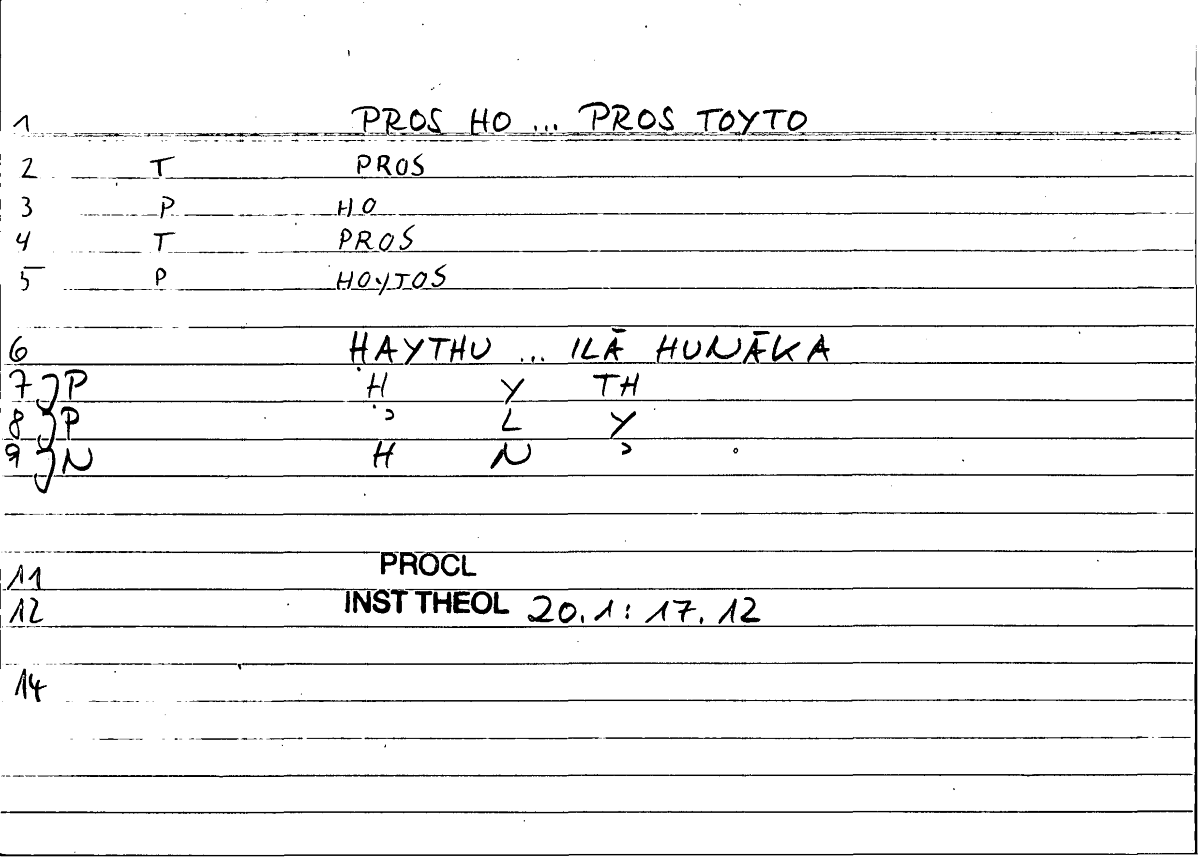 1 PROS HO ... PROS TOYTO
2 T PROS
3 P HO
4 T PROS
5 P HOYTOS
6 HAYTHU ... ILĀ HUNĀKA
7 } P H Y TH
8 } P ʾ L Y
9 } N H N ʾ
11 PROCL
12 INST THEOL 20.1: 17.12
14